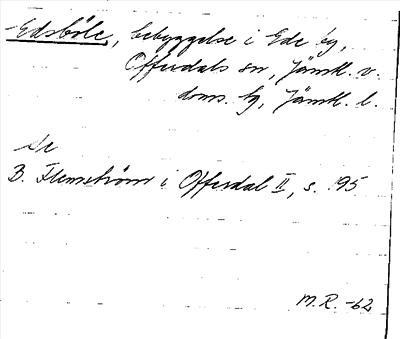 -Edsböle, bebyggelse i Ede by,
Offerdals sn, Jämtl. v.
doms. hg, Jämtl. l.
Se
B. Flemström i Offerdal II, s. 195
M.R. -62